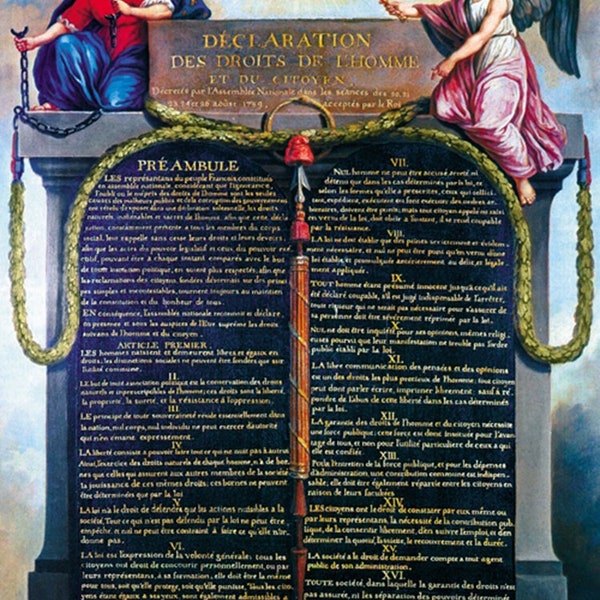 DÉCLARATION
DES DROITS DE L'HOMME
ET DU CITOYEN,
Décretés par l'Assemblée Nationale dans les séances des 20, 21
23, 24 et 26 août 1789, acceptés par le Roi
PRÉAMBULE
LES représentans du peuple François, constitués
en assemblée nationale, considérant que l'ignorance,
l'oubli ou le mépris des droits de l'homme sont les seules
causes des malheurs publics et de la corruption des gouvernemens
ont résolu d'exposer dans une déclaration solemnelle, les droits
naturels, inaliénables et sacrés de l'homme, afin que cette décla
ration, constamment présente à tous les membres du corps
social, leur rappelle sans cesse leurs droits et leurs devoirs,
afin que les actes du pouvoir législatif et ceux du pouvoir exé
cutif, pouvant être à chaque instant comparés avec le but
de toute institution politique, en soient plus respectés; afin que
les reclamations des citoyens, fondées désormais sur des princi
pes simples et incontestables, tournent toujours au maintien
de la constitution et du bonheur de tous.
EN conséquence, l'assemblée nationale reconnoit et déclare,
en présence et sous les auspices de l'Etre suprême les droits
suivans de l'homme et du citoyen.
ARTICLE PREMIER.
LES hommes naissent et demeurent libres et égaux en
droits; les distinctions sociales ne peuvent être fondées que sur
l'utilité commune.
II.
LE but de toute association politique est la conservation des droits
naturels et imprescriptibles de l'homme; ces droits sont la liberté,
la propriété, la sureté, et la résistance à l'oppression.
III.
LE principe de toute souveraineté réside essentiellement dans
la nation, nul corps, nul individu ne peut exercer d'autorité
qui n'en émane expressement.
IV.
LA liberté consiste à pouvoir faire tout ce qui ne nuit pas à autrui
Ainsi, l'exercice des droits naturels de chaque homme, n'a de bor-
nes que celles qui assurent aux autres membres de la société
la jouissance de ces mêmes droits; ces bornes ne peuvent
être déterminées que par la loi
V.
LA loi n'a le droit de défendre que les actions nuisibles à la
société. Tout ce qui n'est pas défendu par la loi ne peut être
empêché, et nul ne peut être contraint à faire ce qu'elle n'or-
donne pas.
VI.
LA loi est l'expression de la volonté générale; tous les
citoyens ont droit de concourir personnellement, ou par
leurs représentans, à sa formation; elle doit être la même
pour tous, soit qu'elle protege, soit qu'elle punisse. Tous les
citoyens étant égaux à ses yeux, sont également admissibles à
VII.
NUL homme ne peut être accusé, arreté, ni
détenu que dans les cas déterminés par la loi, et
selon les formes qu'elle a prescrites, ceux qui sollici-
tent, expédient, exécutent ou font exécuter des ordres ar-
bitraires, doivent être punis; mais tout citoyen appelé ou saisi
en vertu de la loi, doit obéir à l'instant, il se rend coupable
par la résistance.
VIII.
LA loi ne doit établir que des peines strictement et évidem-
ment nécessaire, et nul ne peut être puni qu'en vertu d'une
loi établie et promulguée antérieurement au délit, et légale-
ment appliquée.
IX.
TOUT homme étant présumé innocent jusqu'à ce qu'il ait
été déclaré coupable, s'il est jugé indispensable de l'arrêter,
toute rigueur qui ne serait pas nécessaire pour s'assurer de
sa personne doit être sévèrement réprimée par la loi.
X.
NUL ne doit être inquiété pour ses opinions, mêmes religi-
euses pourvu que leur manifestation ne trouble pas l'ordre
public établi par la loi.
XI.
LA libre communication des pensées et des opinions
est un des droits les plus precieux de l'homme; tout citoyen
peut donc parler écrire, imprimer librement: sauf à ré-
pondre de l'abus de cette liberté dans les cas déterminés
par la loi.
XII.
LA garantie des droits de l'homme et du citoyen nécessite
une force publique; cette force est donc instituée pour l'avan-
tage de tous, et non pour l'utilité particuliere de ceux à qui
elle est confiée.
XIII.
Pour l'entretien de la force publique, et pour les dépenses
d'administration, une contribution commune est indispen-
sable; elle doit être également répartie entre les citoyens en
raison de leurs facultées
XIV.
LES citoyens ont le droit de constater par eux même ou
par leurs représentans, la nécessité de la contribution pub-
lique, de la consentir librement, d'en suivre l'emploi, et d'en
déterminer la quotité, l'assiette, le recouvrement et la durée.
XV.
LA société a le droit de demander compte à tout agent
public de son administration.
XVI.
TOUTE société, dans laquelle la garantie des droits n'est
pas assuré, ni les séparation des pouvoirs déterminée